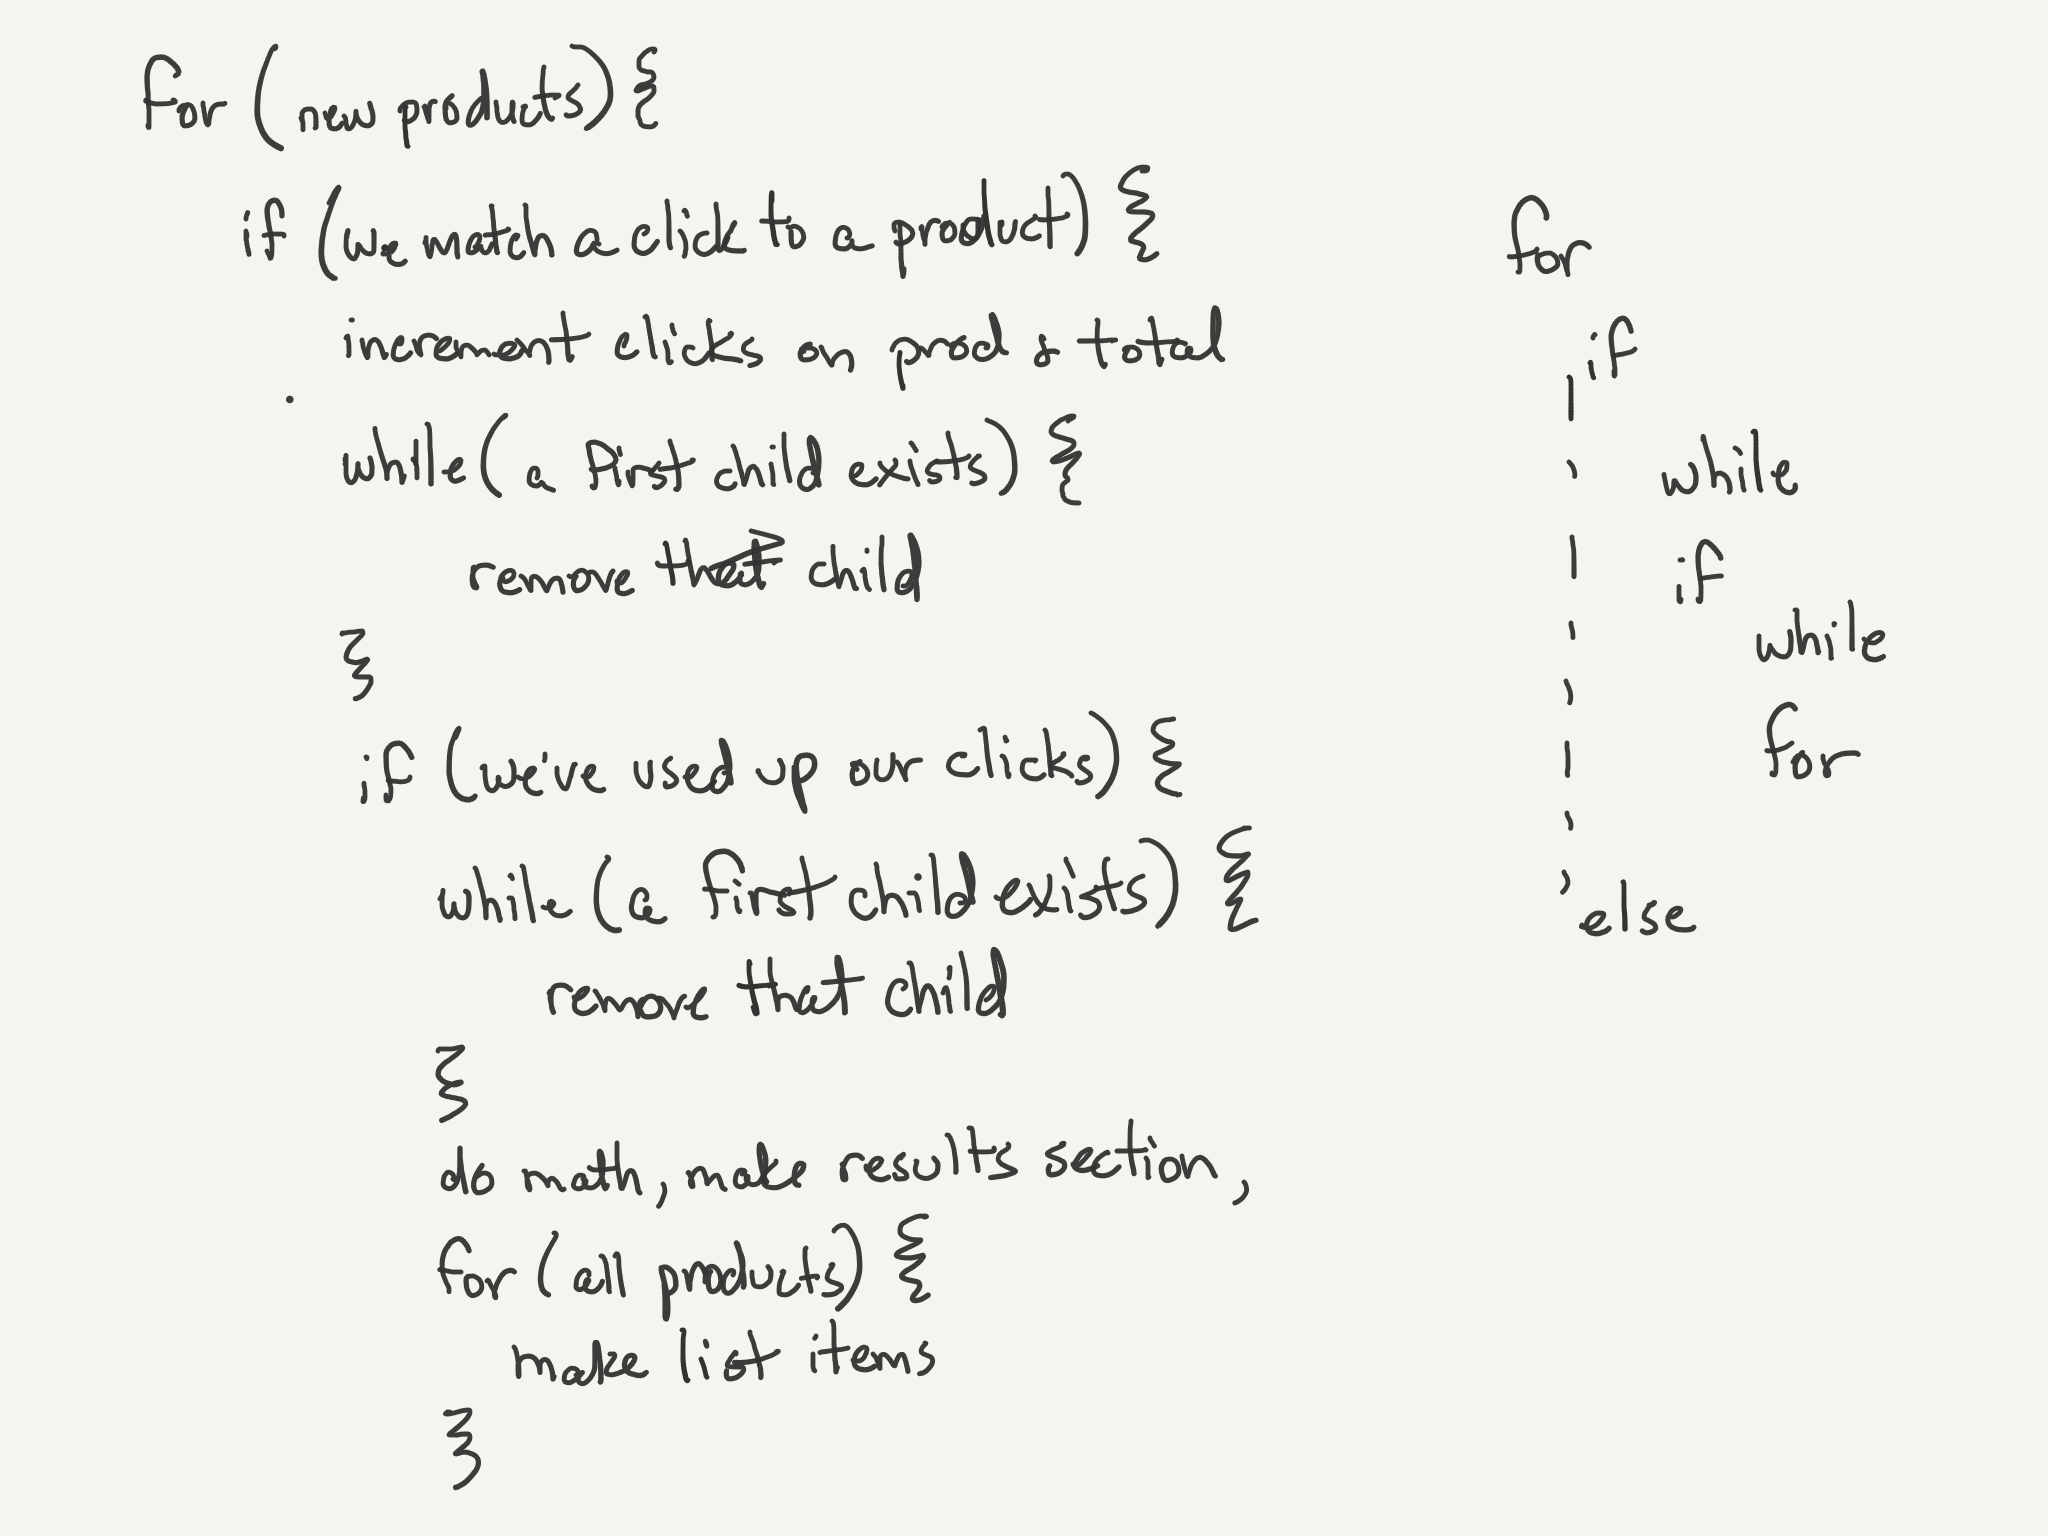 for (new products) {
if (we match a click to a product) {
increment clicks on prod & total
while (a first child exists) {
remove that child
}
if (we've used up our clicks) {
while (a first child exists) {
remove that child
}
do math, make results section,
for (all products) {
make list items
}
for
if
while
if
while
for
else